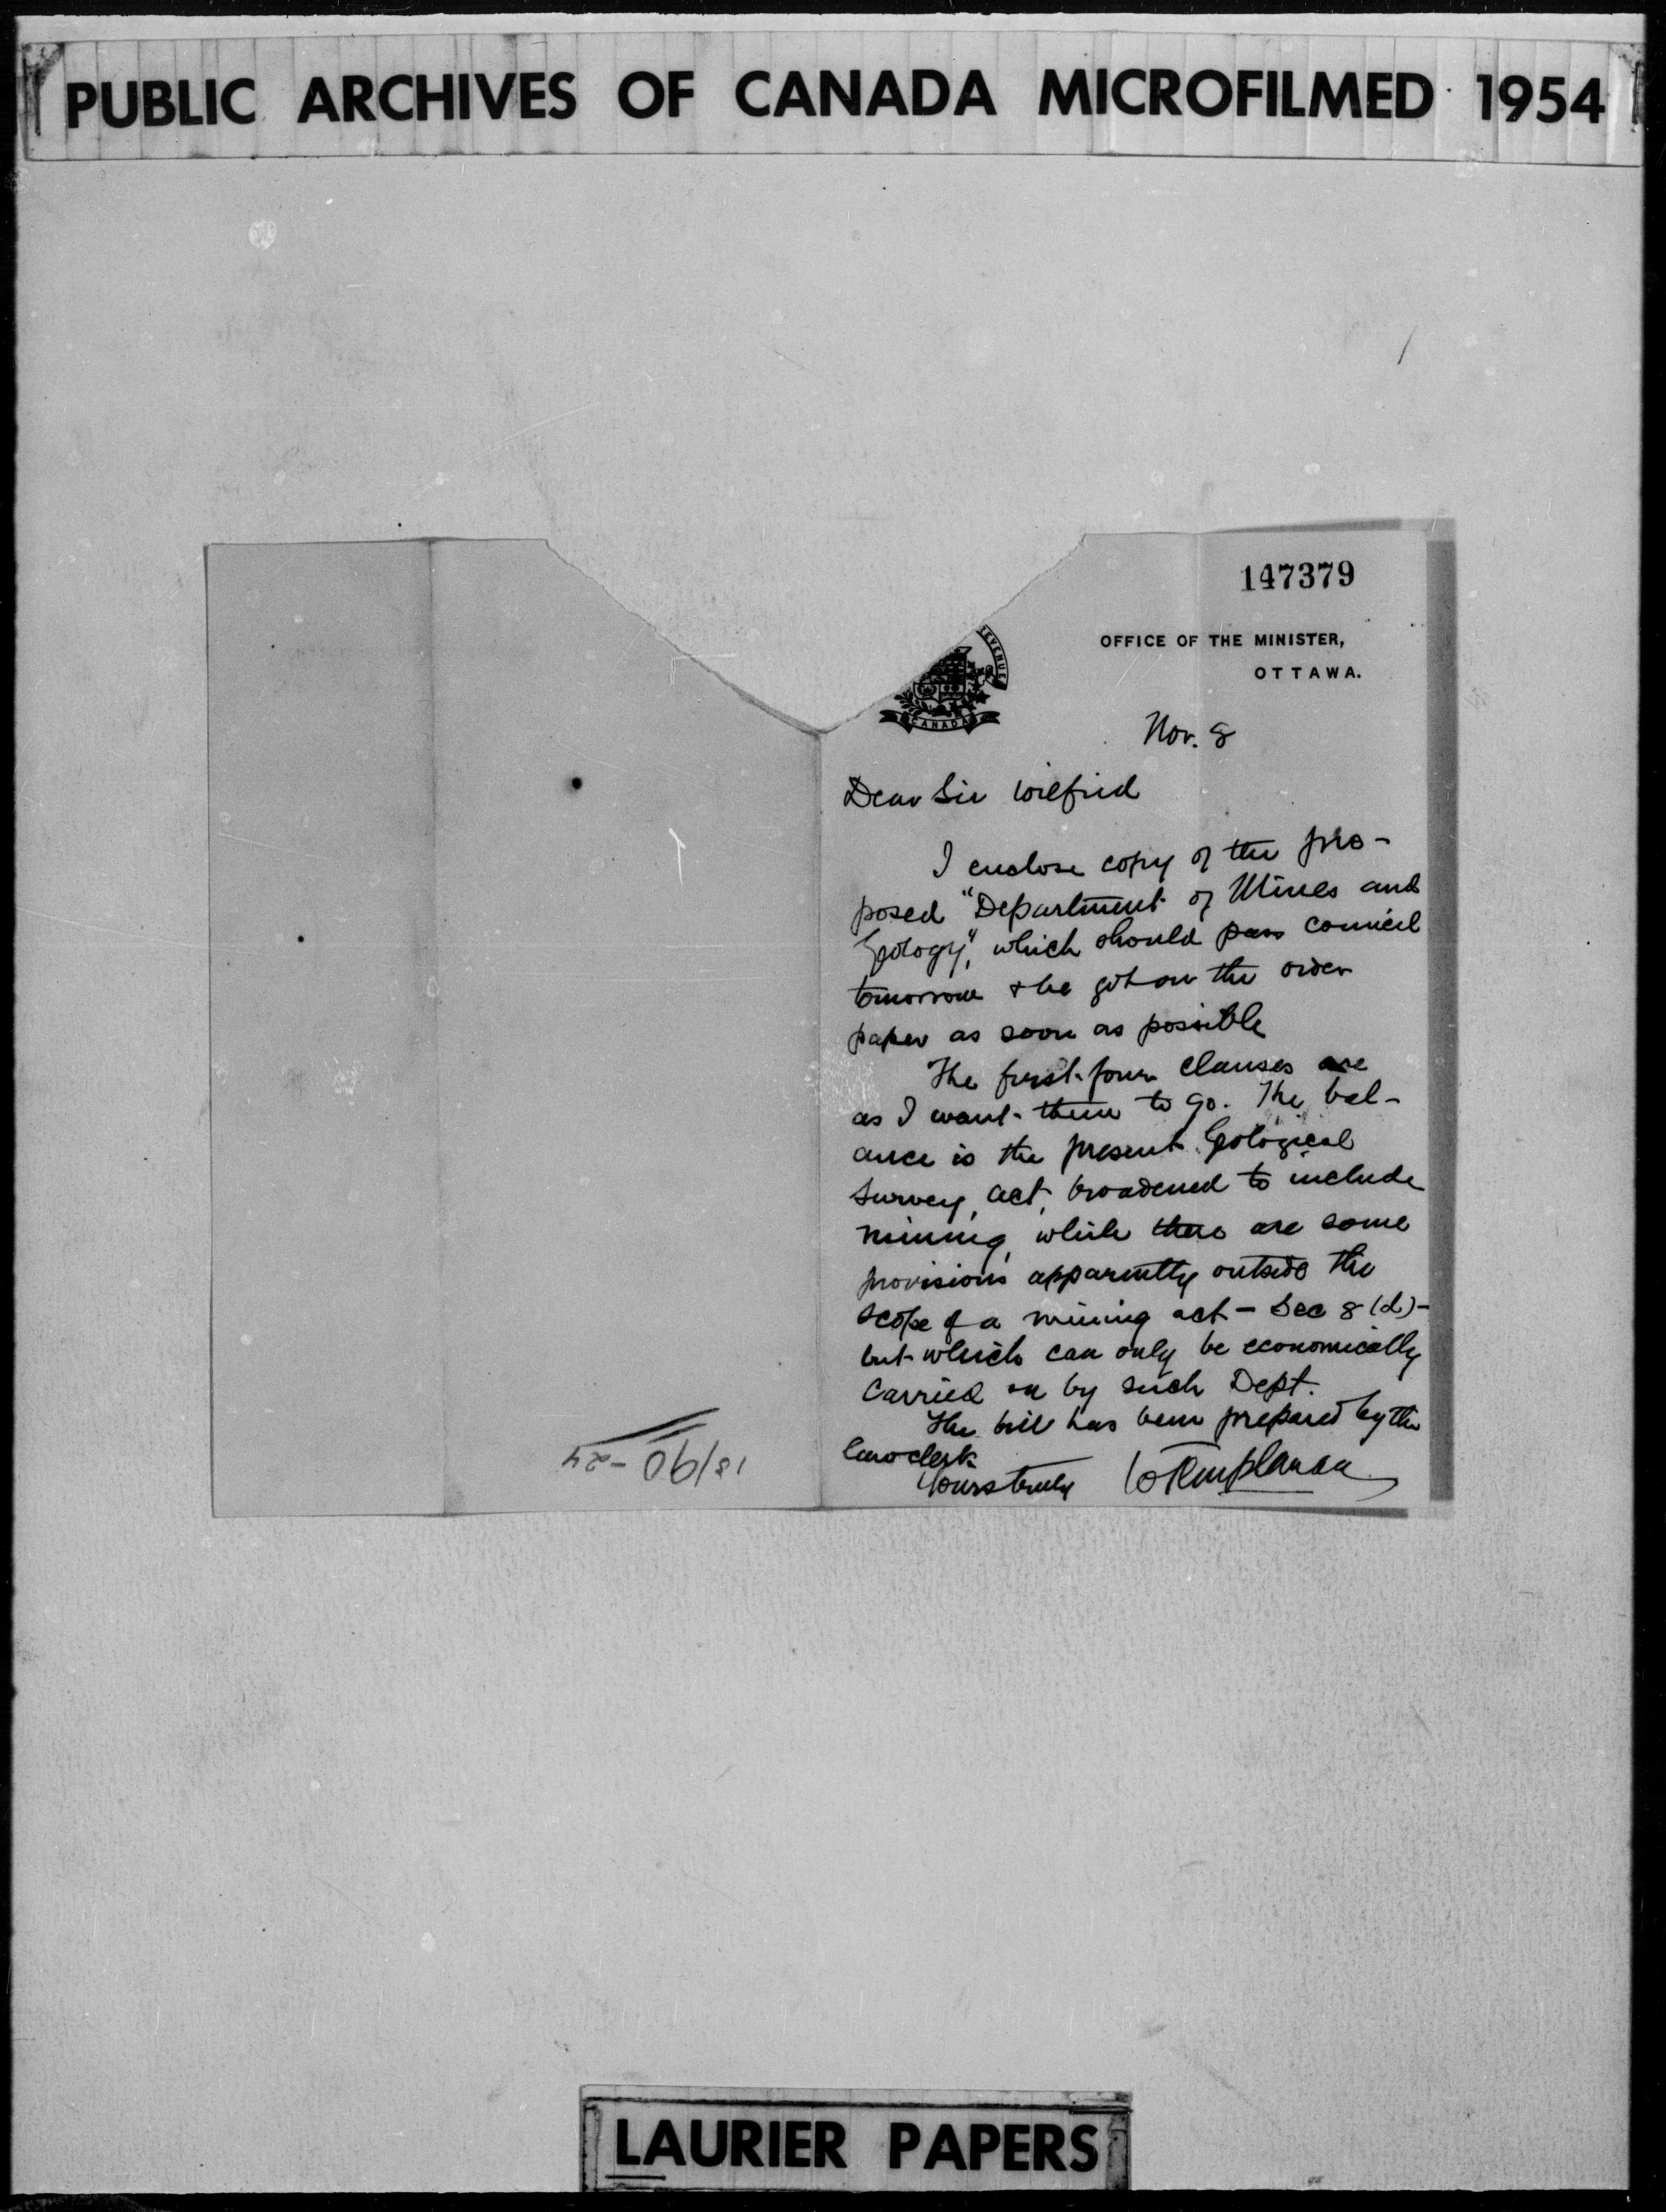 PUBLIC ARCHIVES OF CANADA MICROFILMED 1954
147379
REVENUE
CANADA
OFFICE OF THE MINISTER,
OTTAWA.
Nov. 8
Dear Sir Wilfrid
I enclose copy of the pro-
posed "Department of Mines and
Geology", which should pass council
tomorrow & be got on the order
paper as soon as possible
The first four clauses are
as I want them to go. The bal-
ance is the present Geological
Survey act, broadened to include
mining, while there are some
provisions apparently outside the
scope of a mining act - Sec 8 (d) -
but which can only be economically
carried on by such Dept.
The bill has been prepared by the
law clerk
Yours truly W Templeman
LAURIER PAPERS